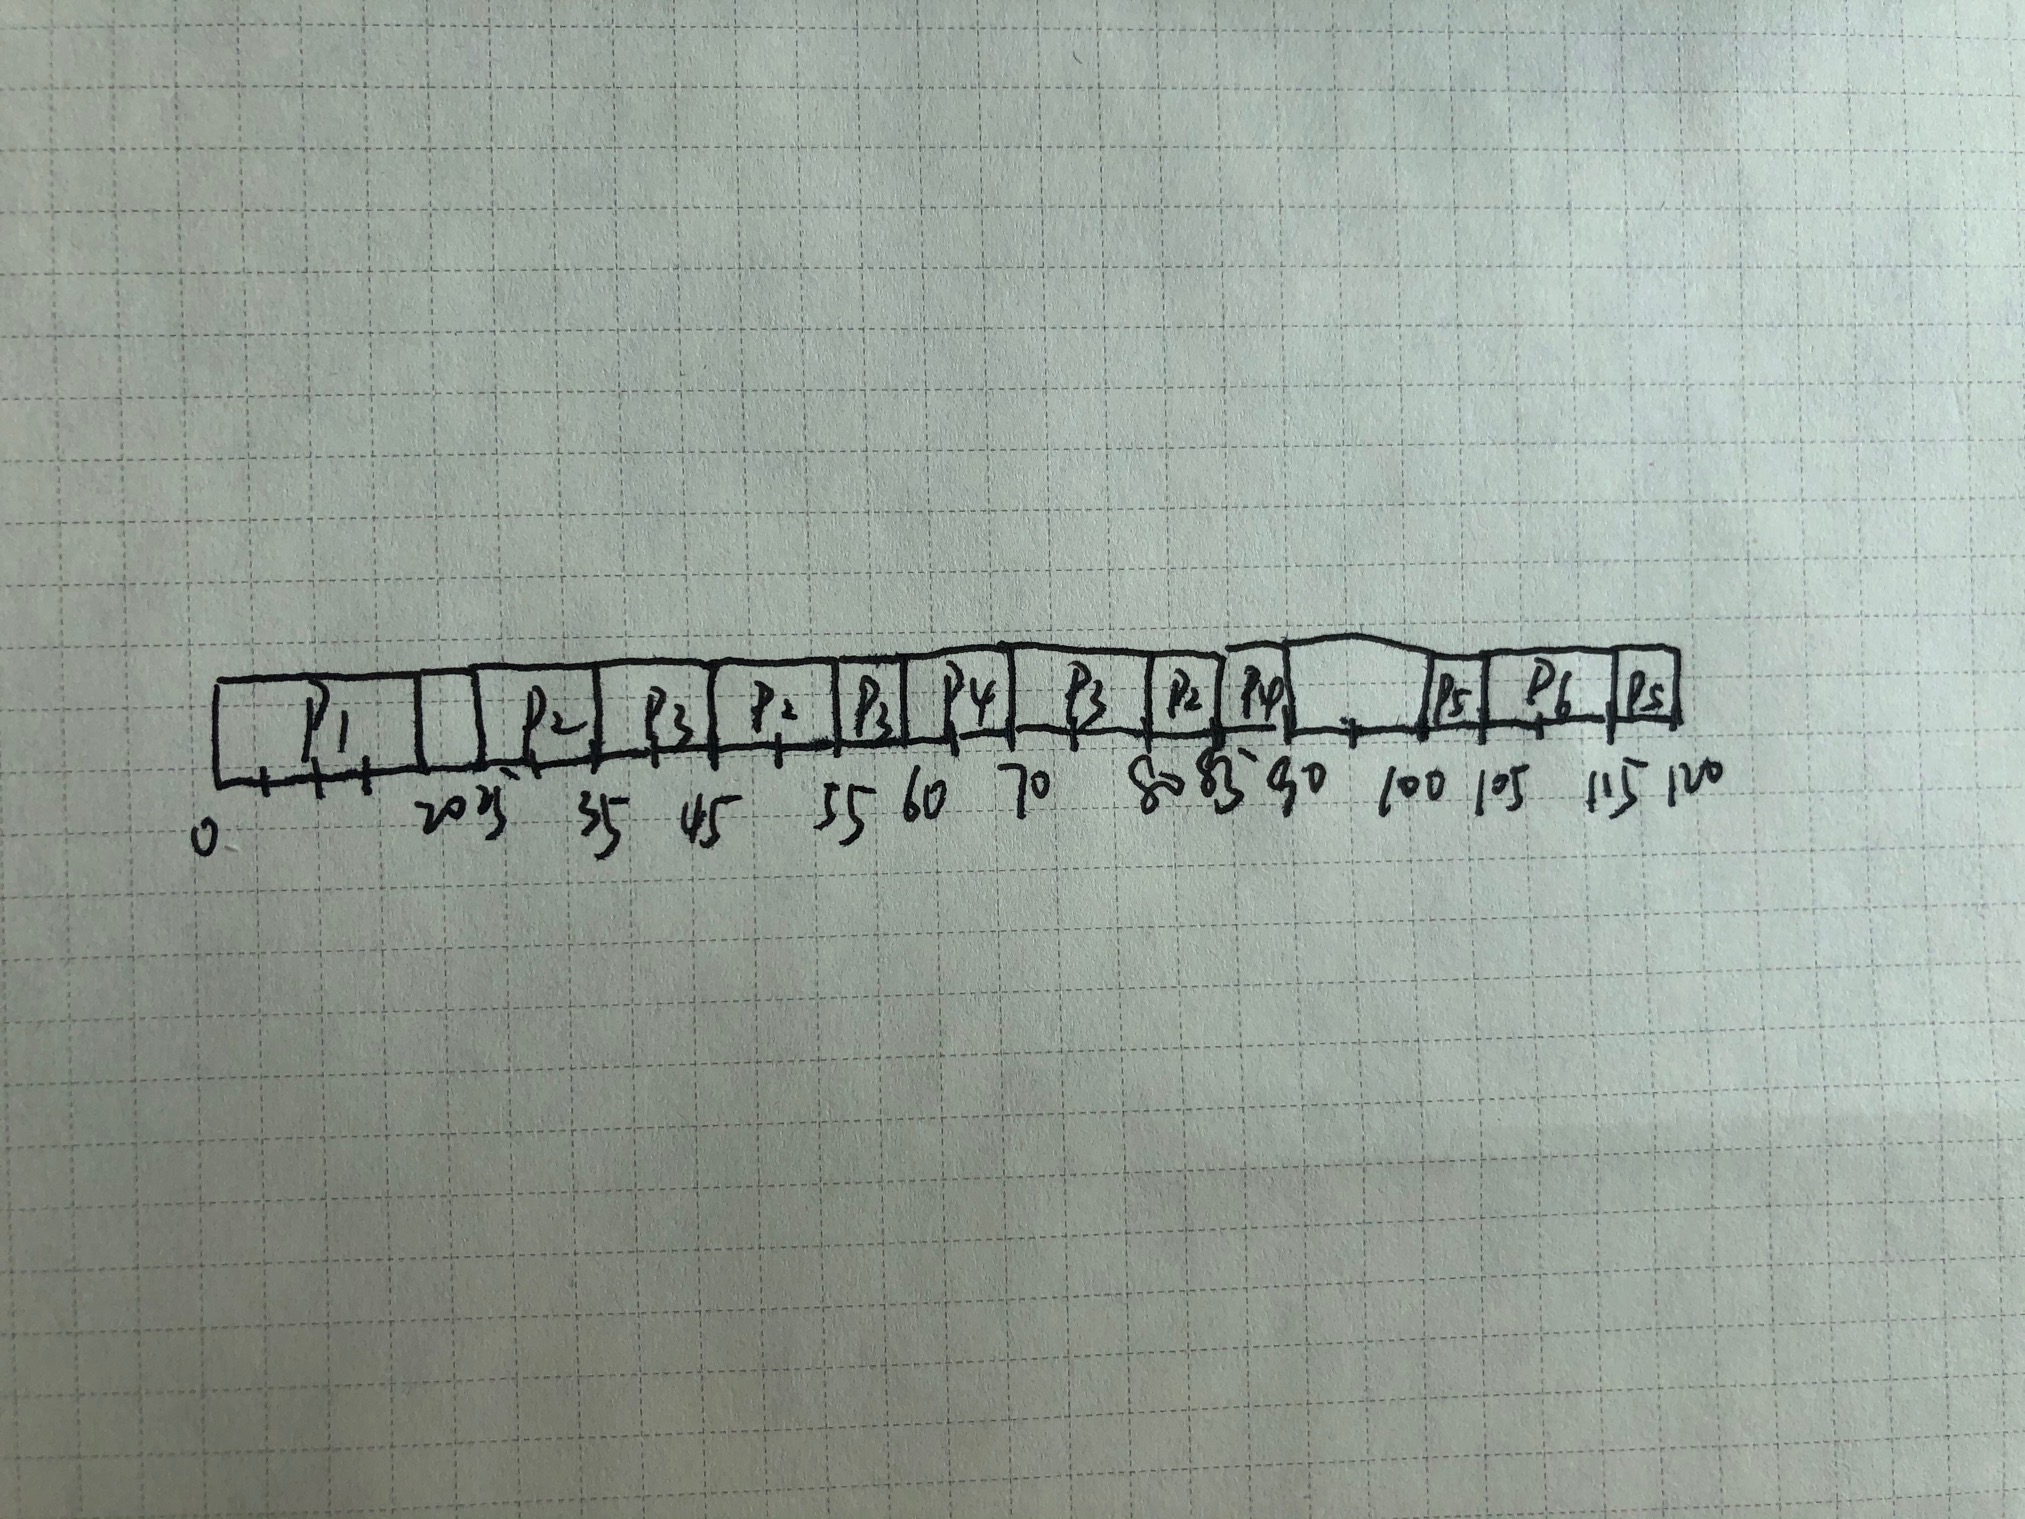 P1 P2 P3 P2 P3 P4 P3 P2 P4 P5 P6 P5
0 20 25 35 45 55 60 70 80 85 90 100 105 115 120